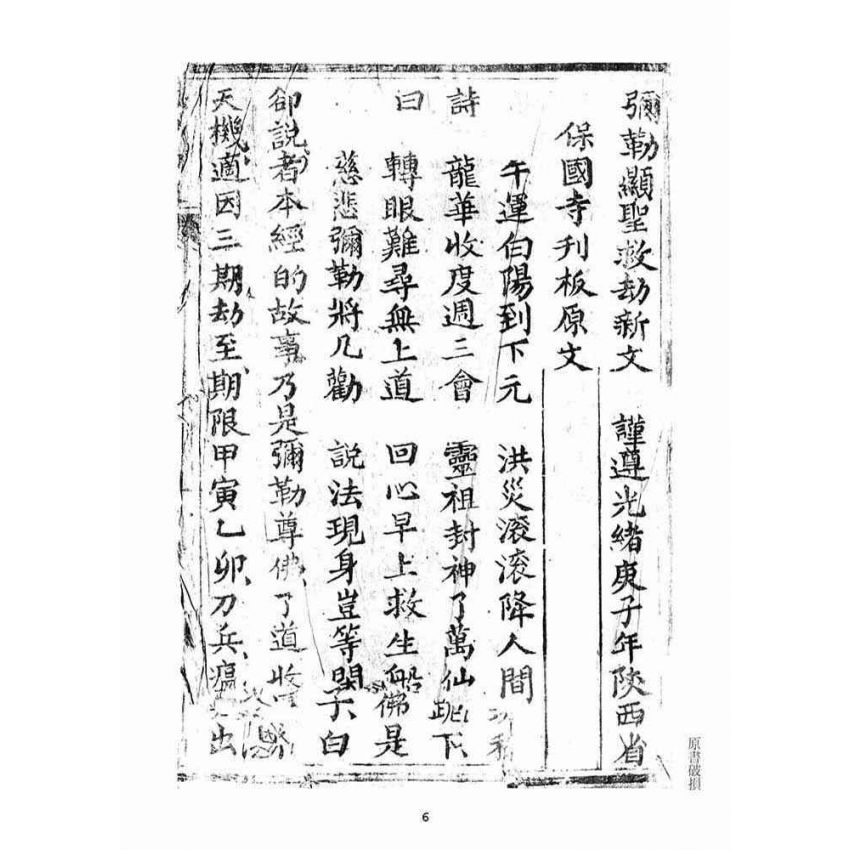 彌勒顯聖救劫新文 謹遵光緒庚子年陝西省
保國寺刊板原文
午運白陽到下元 洪災滾滾降人間
詩 龍華收度週三會 靈祖封神了萬仙 跳下
曰 轉眼難尋無上道 回心早上救生船 佛是
慈悲彌勒將凡勸 說法現身豈等閑 子白
卻說者本經的故事乃是彌勒尊佛了道收
天機適因三期劫至期限甲寅乙卯刀兵瘟出
原書破損
6